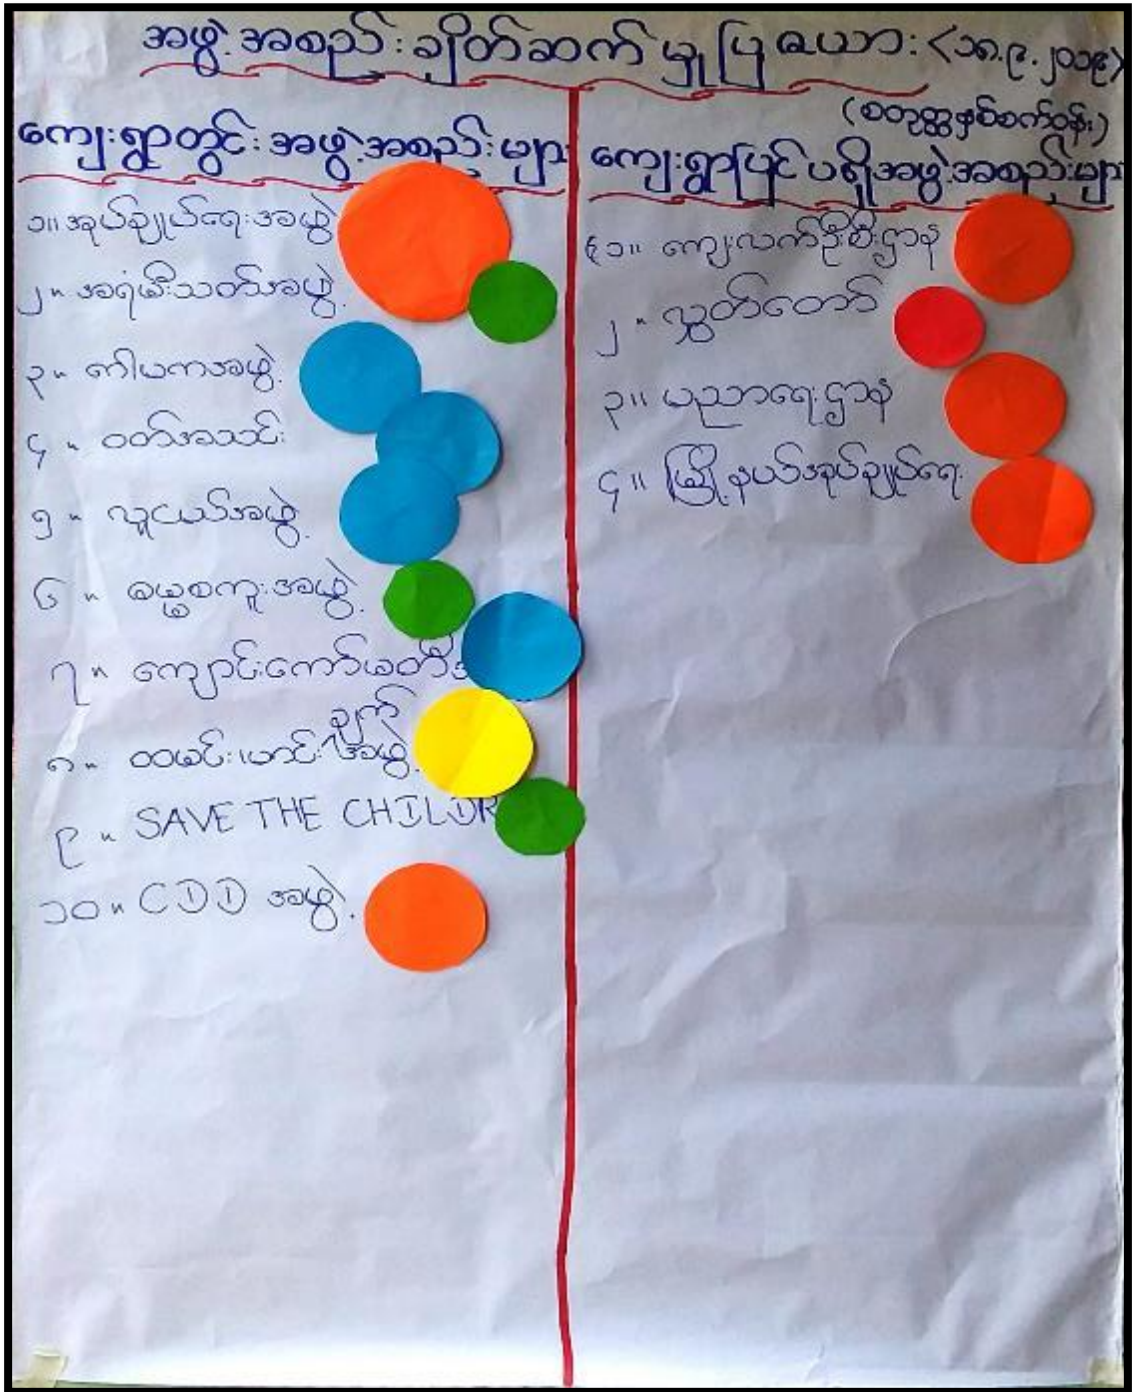 အဖွဲ့အစည်းချိတ်ဆက်မှုပြဇယား <၁၈.၉.၂၀၁၉>
ကျေးရွာတွင်းအဖွဲ့အစည်းများ
၁။ အုပ်ချုပ်ရေးအဖွဲ့
၂။ အရံမီးသတ်အဖွဲ့
၃။ ကမိယကအဖွဲ့
၄။ ဝတ်အသင်း
၅။ လူငယ်အဖွဲ့
၆။ ဓမ္မစကူးအဖွဲ့
၇။ ကျောင်းကော်မတီ
၈။ ထမင်းဟင်းချက်အဖွဲ့
၉။ SAVE THE CHILDR
၁၀။ CDD အဖွဲ့
(စတုတ္ထနှစ်စက်ဝန်း)
ကျေးရွာပြင်ပရှိအဖွဲ့အစည်းများ
၁။ ကျေးလက်ဦးစီးဌာန
၂။ လွှတ်တော်
၃။ ပညာရေးဌာန
၄။ မြို့နယ်အုပ်ချုပ်ရေး